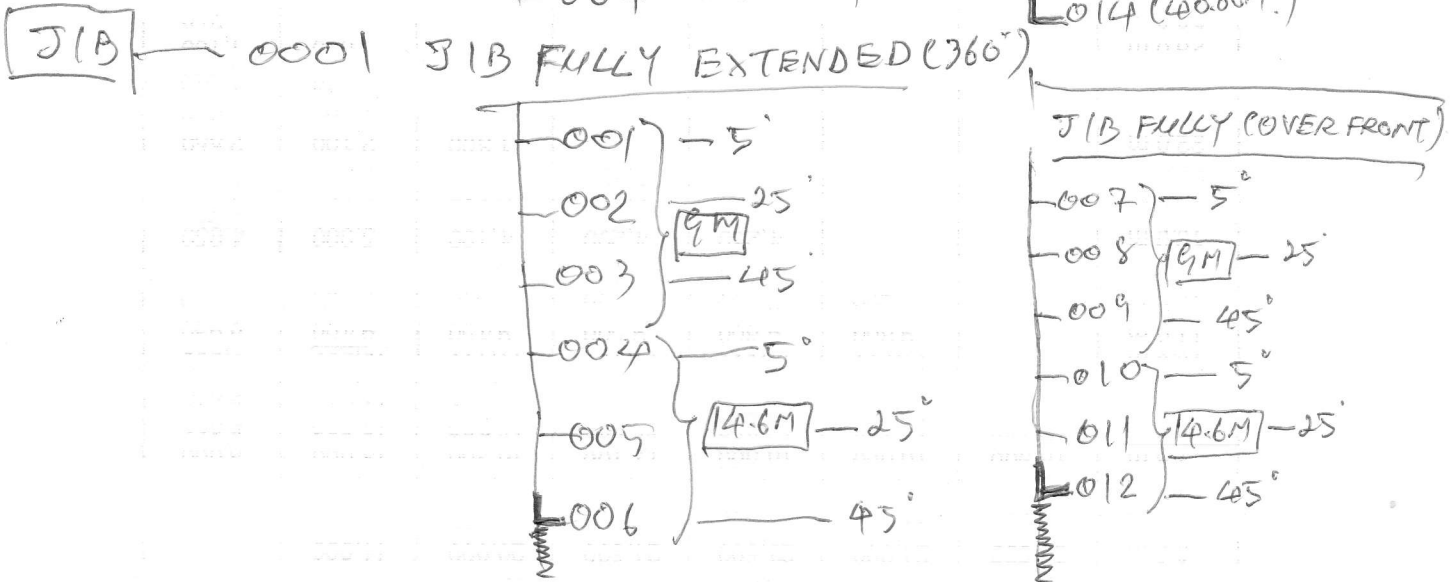 014
JIB 0001 JIB FULLY EXTENDED (360°)
001 5°
002 25°
9M
003 45°
004 5°
005 14.6M 25°
006 45°
JIB FULLY (OVER FRONT)
007 5°
008 9M 25°
009 45°
010 5°
011 14.6M 25°
012 45°